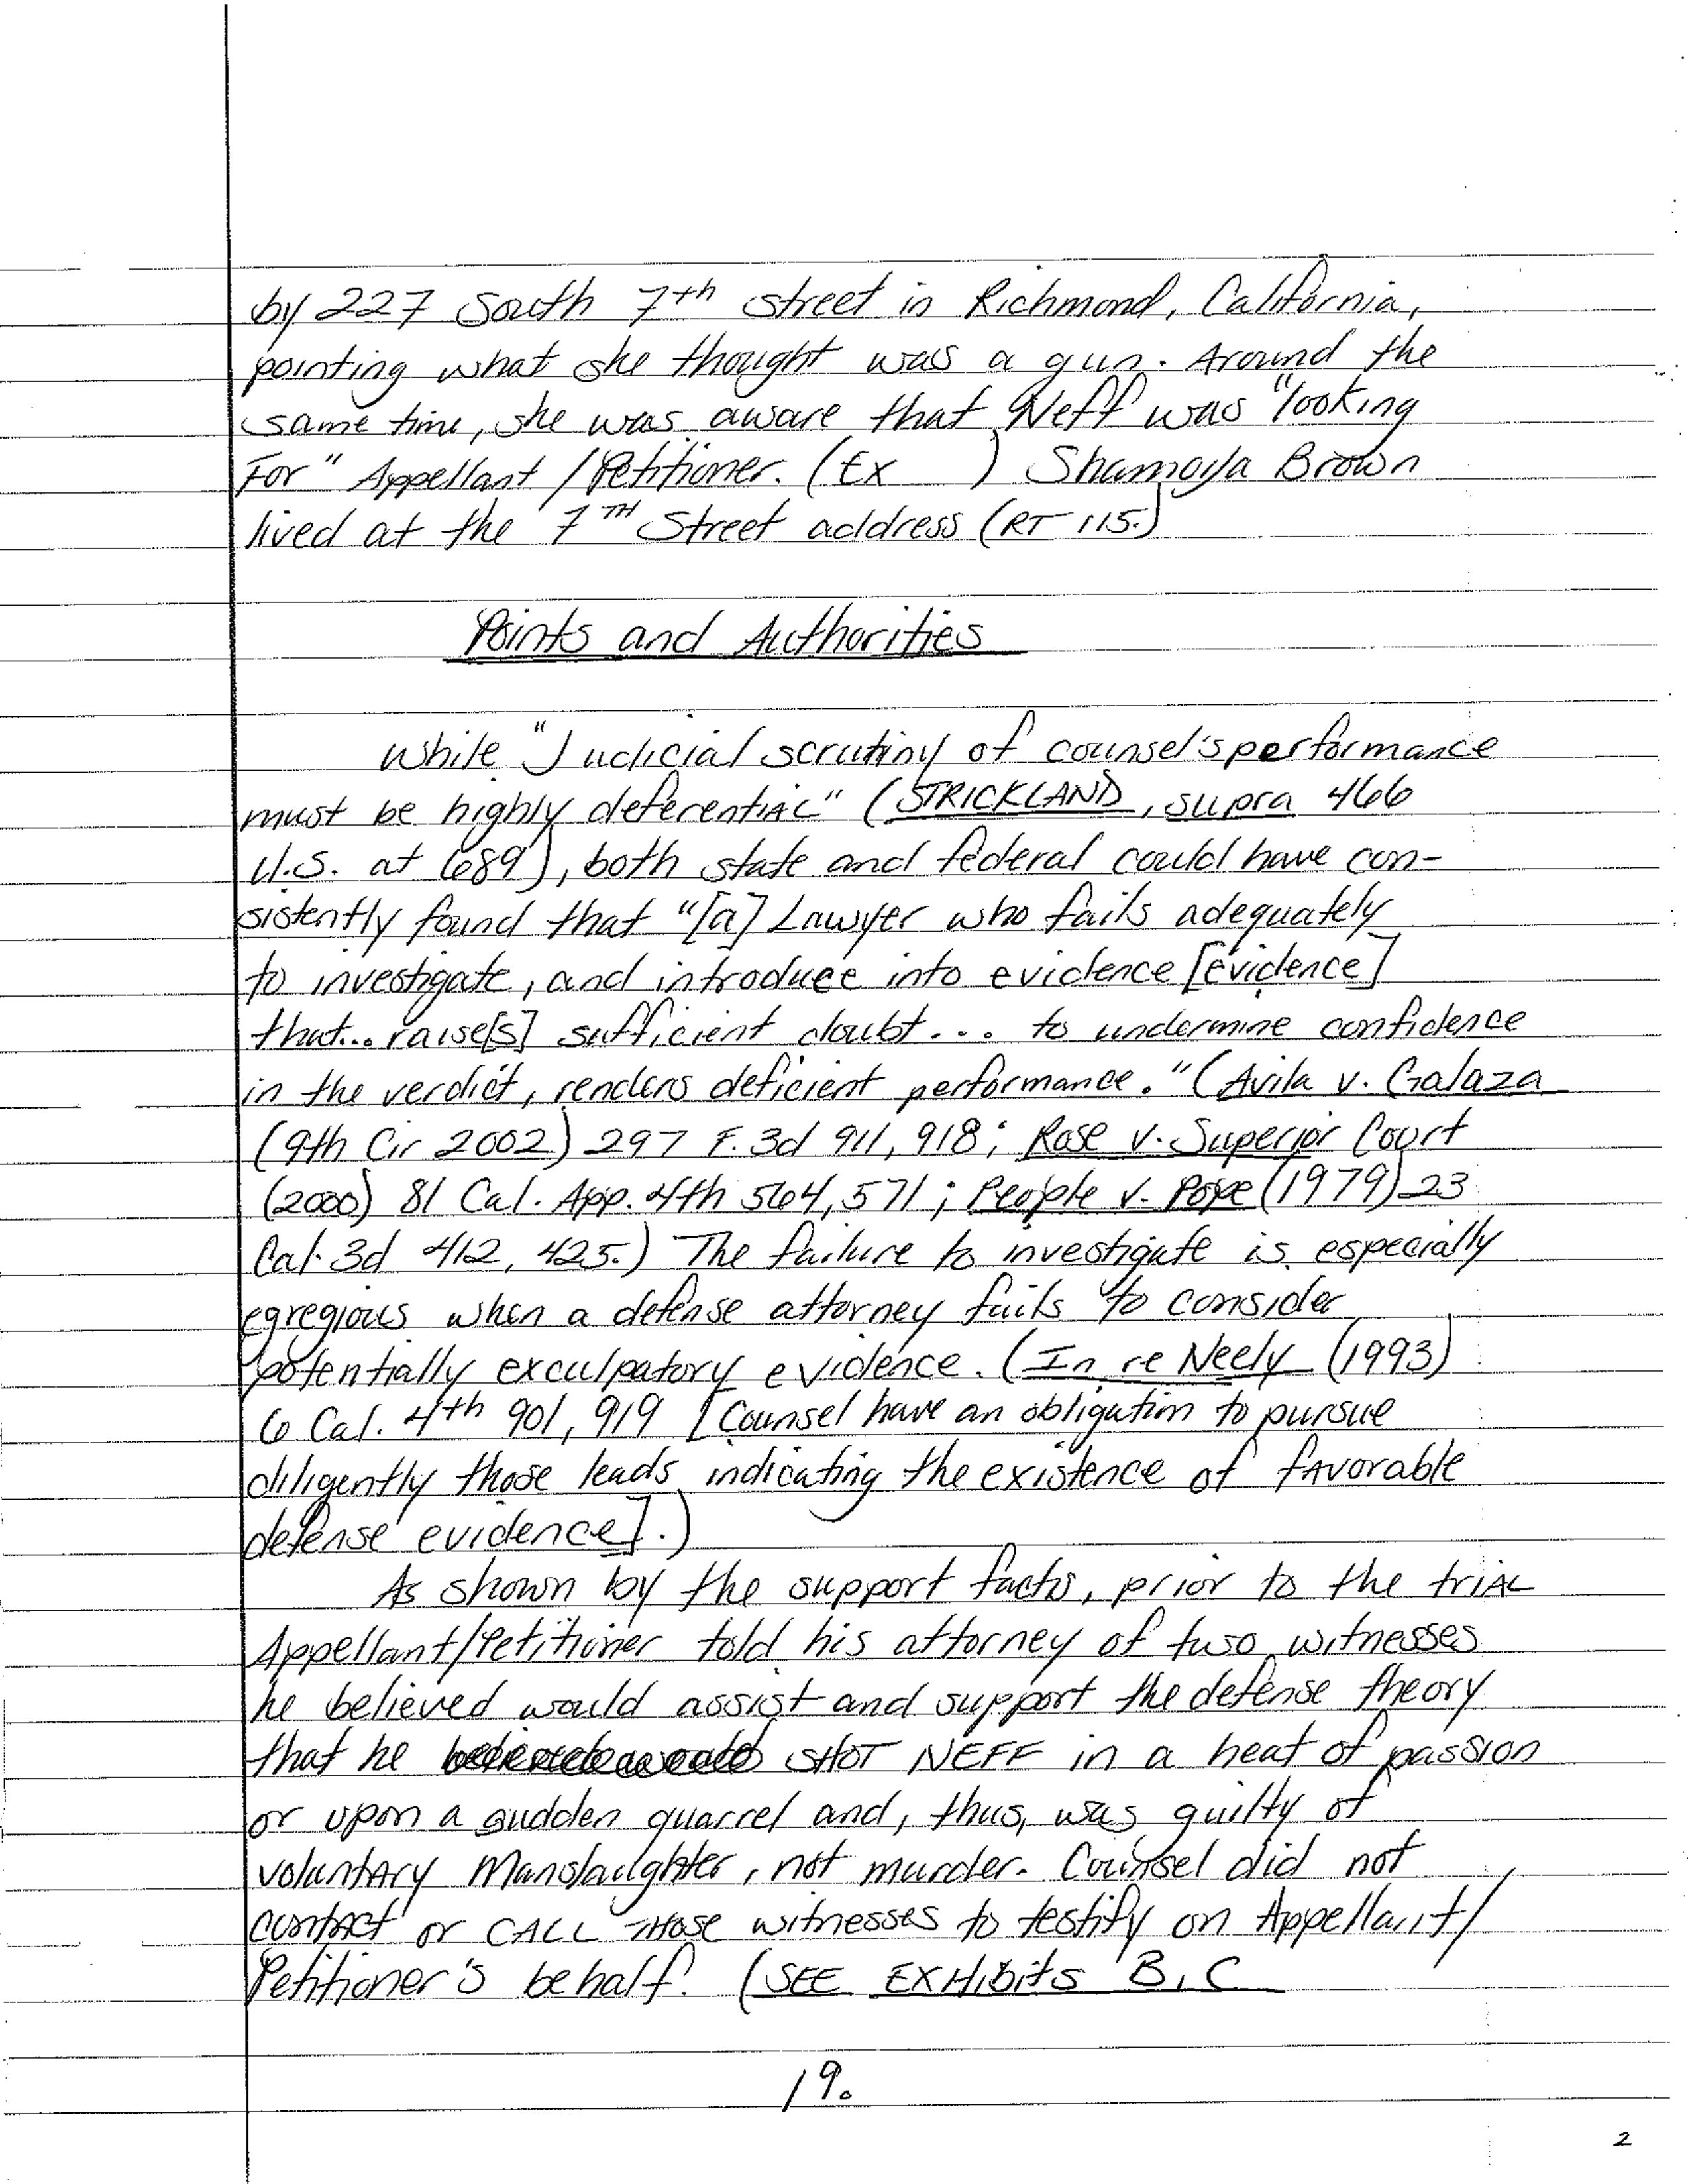 by 227 South 7th street in Richmond, California,
pointing what she thought was a gun. Around the
same time, she was aware that Neff was "looking
For" Appellant/Petitioner. (Ex      ) Shamoya Brown
lived at the 7TH Street address (RT 115.)
Points and Authorities
While "Judicial scrutiny of counsel's performance
must be highly deferentiAL" (STRICKLAND, supra 466
U.S. at 689), both state and federal could have con-
sistently found that "[a] Lawyer who fails adequately
to investigate, and introduce into evidence [evidence]
that... raise[s] sufficient doubt... to undermine confidence
in the verdict, renders deficient performance." (Avila v. Galaza
(9th Cir 2002) 297 F.3d 911, 918; Rose v. Superior Court
(2000) 81 Cal. App. 4th 564, 571; People v. Pope (1979) 23
Cal. 3d 412, 425.) The failure to investigate is especially
egregious when a defense attorney fails to consider
potentially exculpatory evidence. (In re Neely (1993)
6 Cal. 4th 901, 919 [Counsel have an obligation to pursue
diligently those leads indicating the existence of fAvorable
defense evidence].)
As shown by the support facts, prior to the triAL
Appellant/Petitioner told his attorney of two witnesses
he believed would assist and support the defense theory
that he SHOT NEFF in a heat of passion
or upon a sudden quarrel and, thus, was guilty of
voluntARy Manslaughter, not murder. Counsel did not
contAct or CALL THose witnesses to testify on Appellant/
Petitioner's behalf. (SEE EXHibits B, C
19.
2